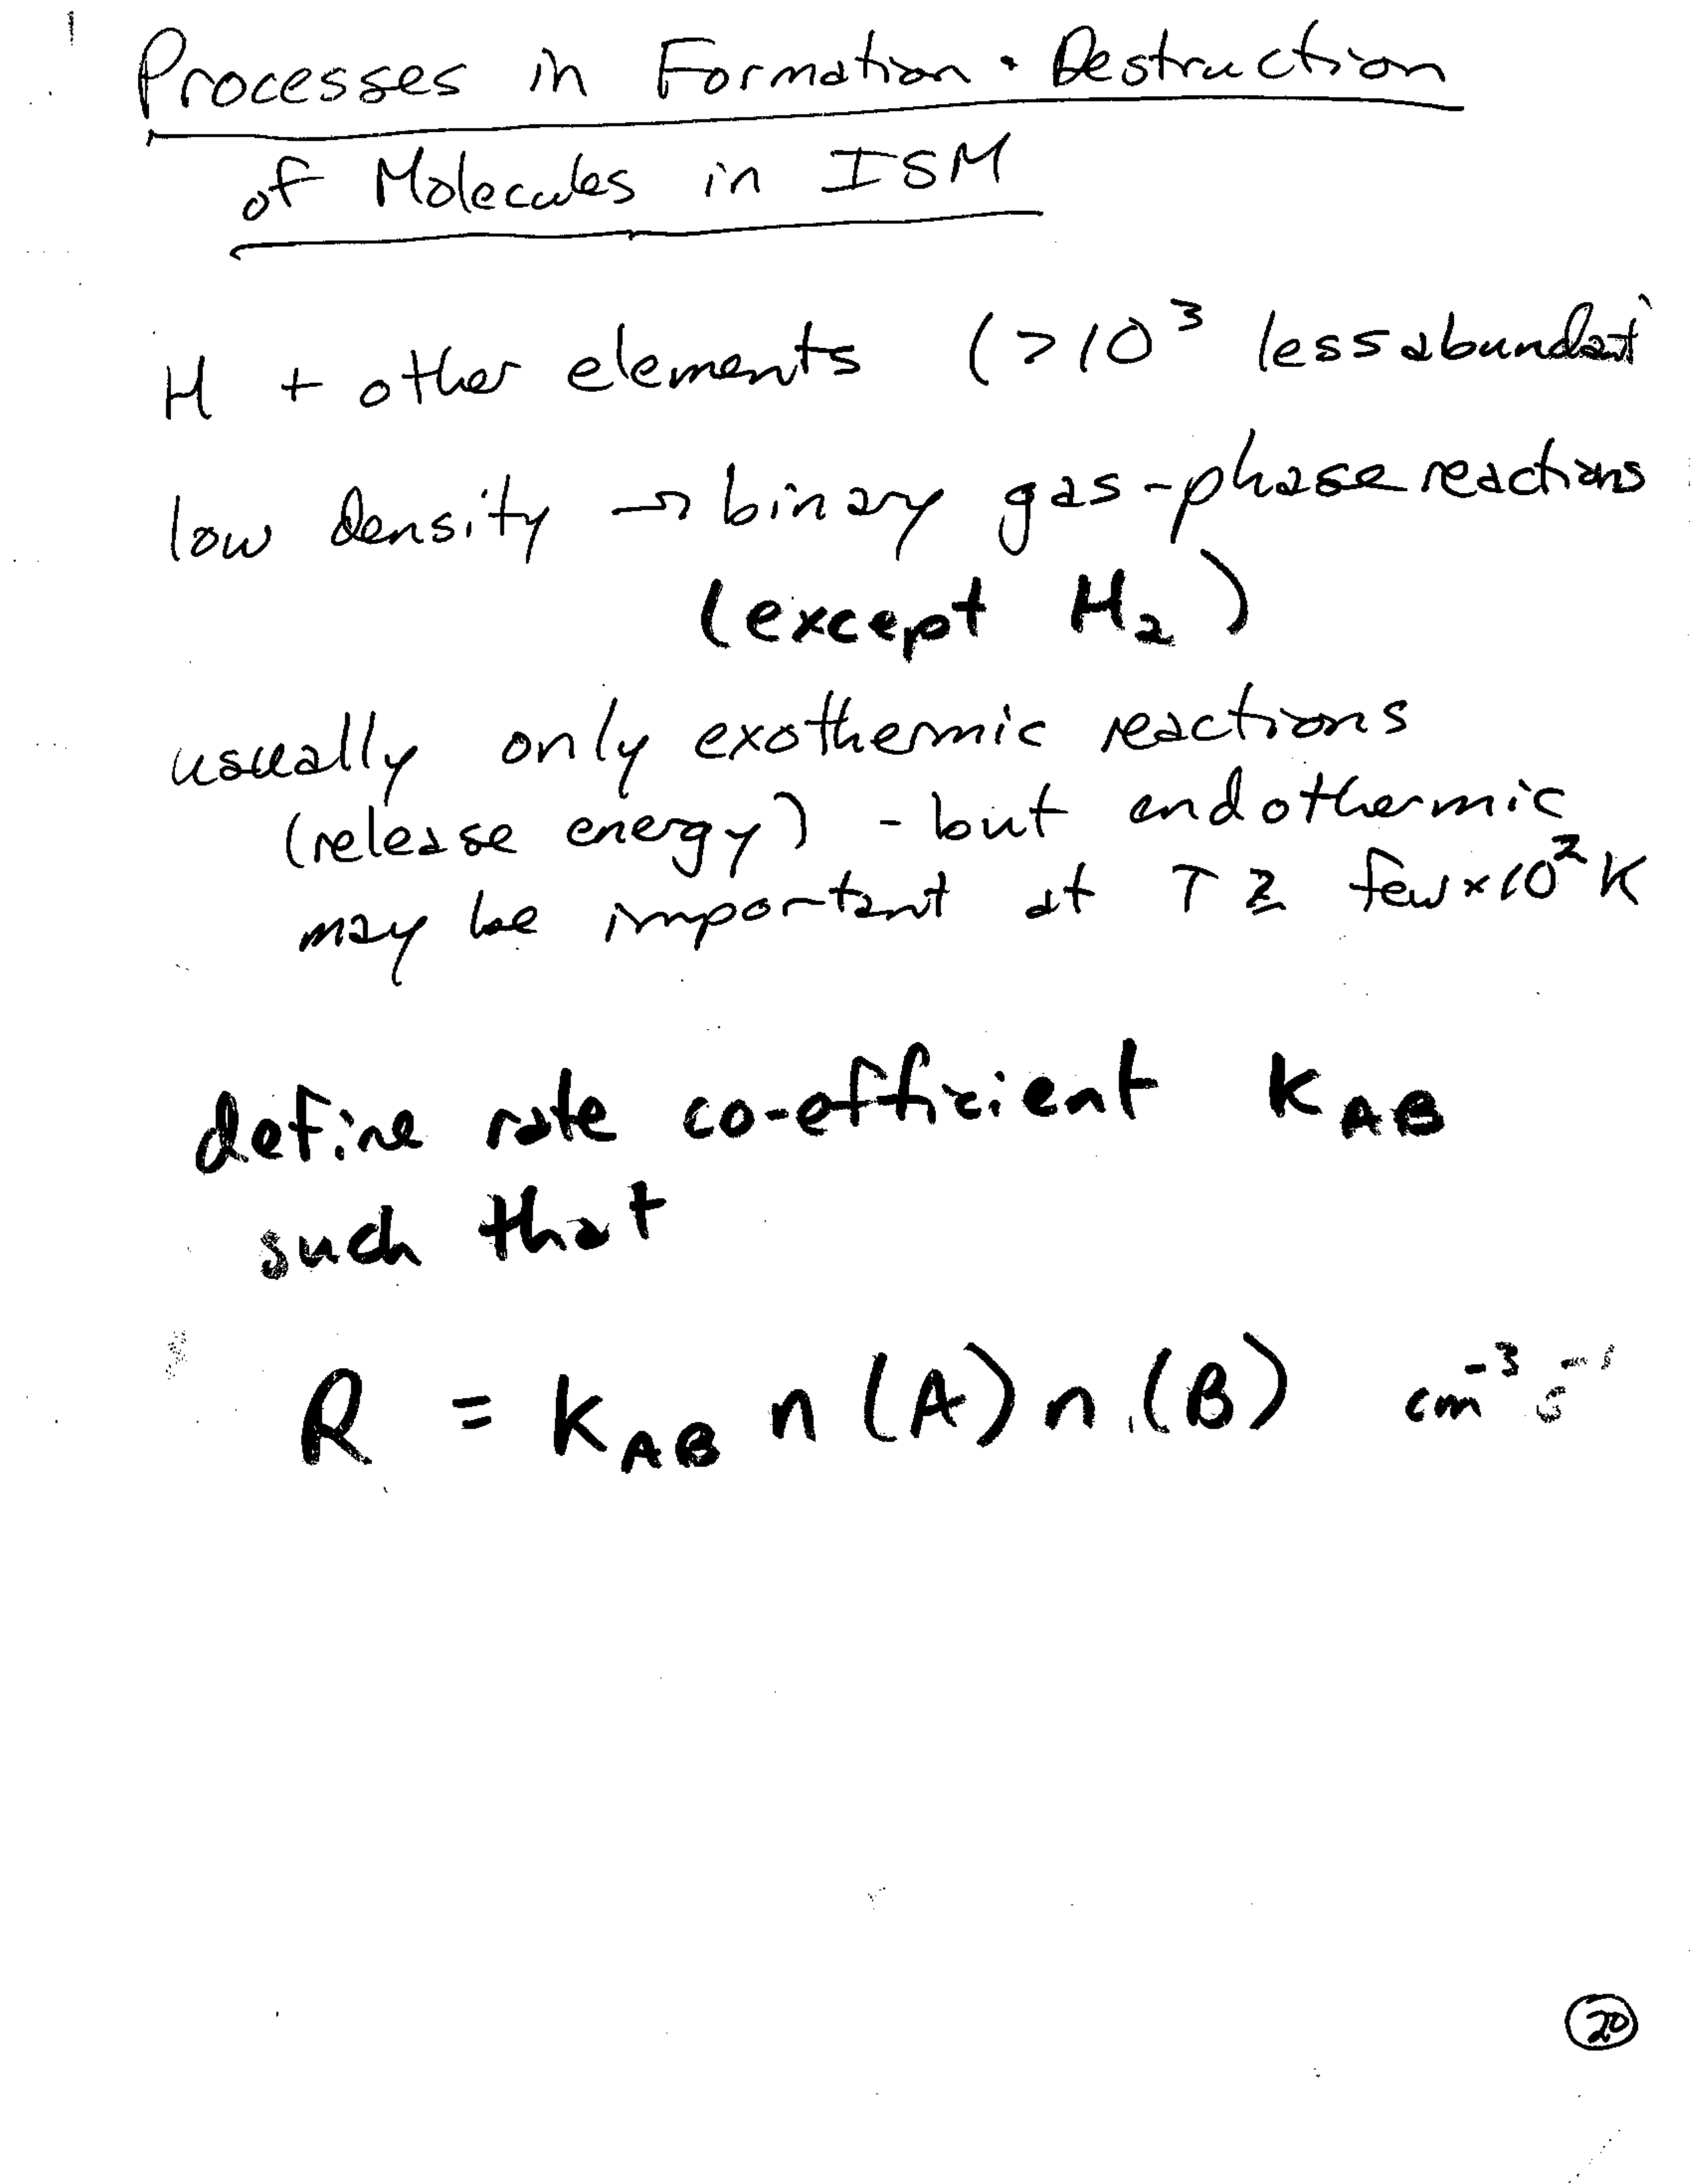 Processes in Formation • Destruction
of Molecules in ISM
H + other elements (>10³ less abundant
low density → binary gas-phase reactions
(except H₂)
usually only exothermic reactions
(release energy) - but endothermic
may be important at T ≳ few×10² K
define rate co-efficient K_AB
such that
R = K_AB n(A) n(B) cm⁻³ s⁻¹
20